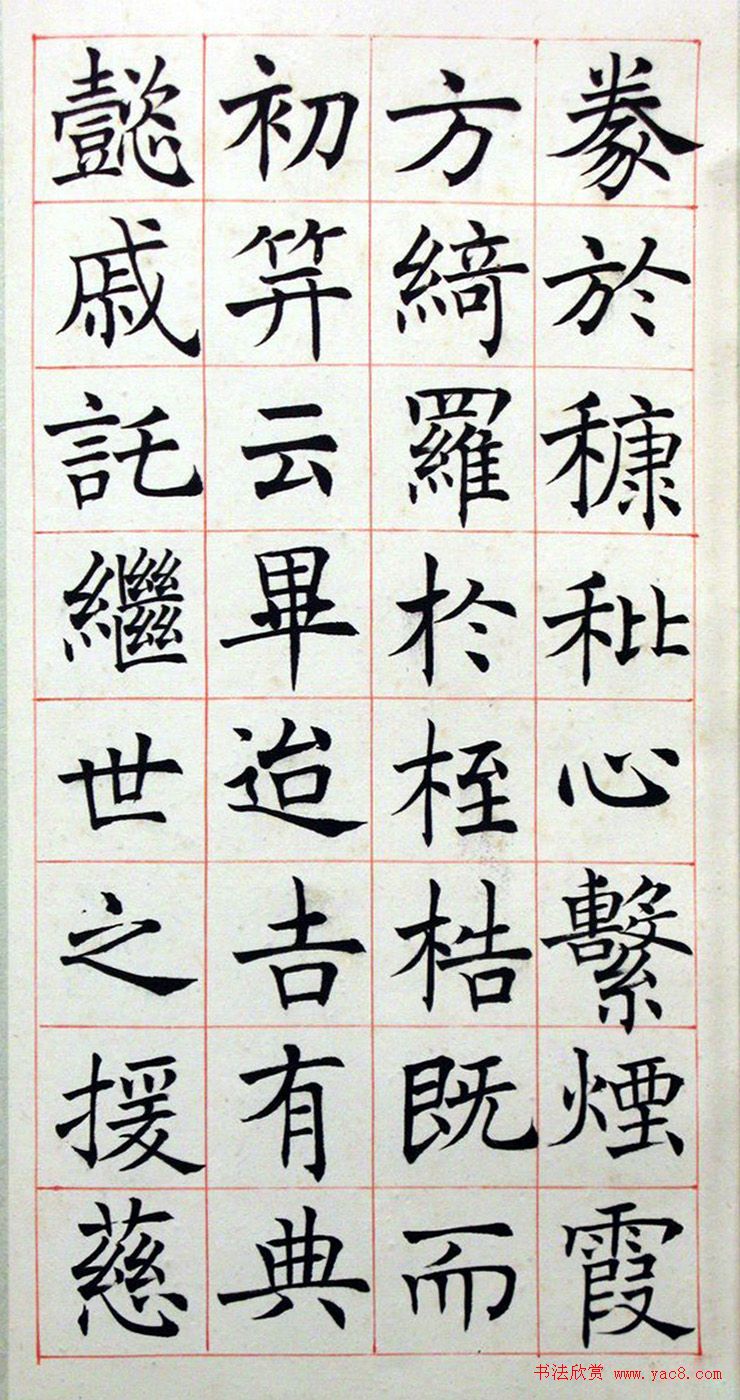 豢於穅秕心繫煙霞
方綺羅於桎梏既而
初筓云畢迨吉有典
懿戚託繼世之援慈
书法欣赏 www.yac8.com